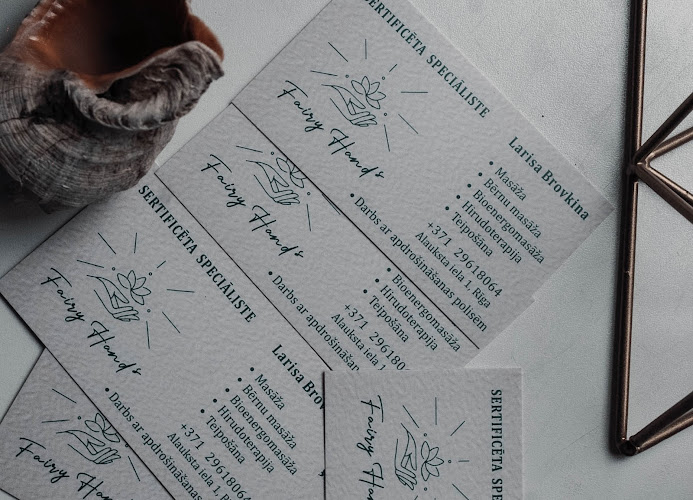 SERTIFICĒTA SPECIĀLISTE
Fairy Hands
Larisa Brovkina
• Masāža
• Bērnu masāža
• Bioenergomasāža
• Hirudoterapija
• Teipošana
• Darbs ar apdrošināšanas polisēm
+371 29618064
Alauksta iela 1, Rīga
Fairy Hands
• Bioenergomasāža
• Hirudoterapija
• Teipošana
• Darbs ar apdrošināšanas
+371 296180
Alauksta iela 1
SERTIFICĒTA SPECIĀLISTE
Fairy Hands
Larisa Brov
• Masāža
• Bērnu masāža
• Bioenergomasāža
• Hirudoterapija
• Teipošana
• Darbs ar apdrošināšanas
+371 29618064
Alauksta iela 1, Rīga
Fairy Hands
SERTIFICĒTA SPE
Fairy Hands